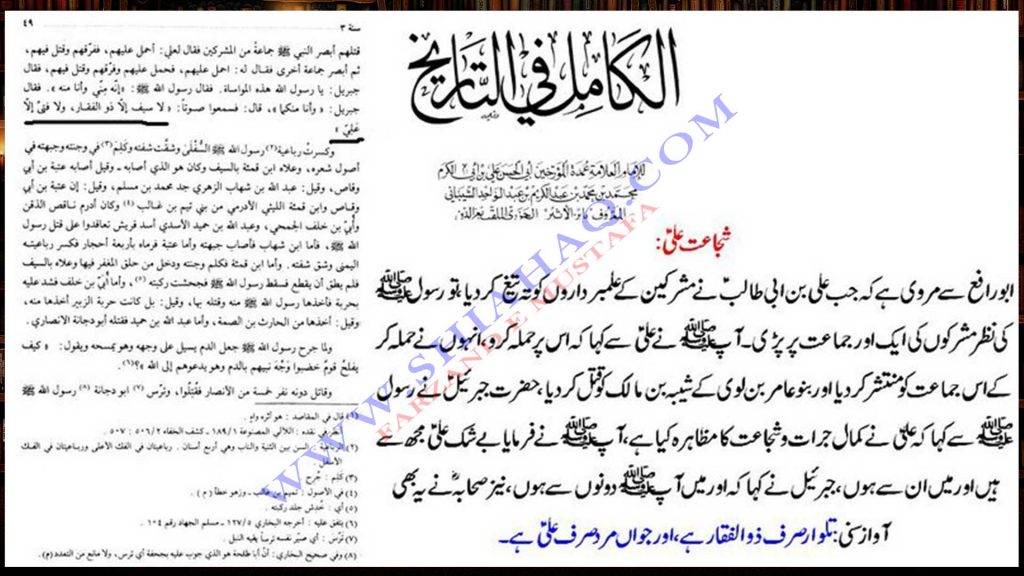 سنة ٣
٤٩
قتلهم أبصر النبي ﷺ جماعة من المشركين فقال لعلي: احمل عليهم، ففرّقهم وقتل فيهم،
ثم أبصر جماعة أخرى فقال له: احمل عليهم، فحمل عليهم وفرّقهم وقتل فيهم، فقال
جبريل: يا رسول الله هذه المواساة. فقال رسول الله ﷺ: «إنه مِنّي وأنا منه». فقال
جبريل: «وأنا منكما»، قال: فسمعوا صوتاً: «لا سيف إلّا ذو الفقار، ولا فتىً إلّا
عَليّ»
وكسرتْ رباعية(٢) رسول الله ﷺ السُّفْلَى وشُقّت شفته وكُلِمَ(٣) في وجنته وجبهته في
أصول شعره، وعلاه ابن قمئة بالسيف وكان هو الذي أصابه ـ وقيل أصابه عتبة بن أبي
وقاص، وقيل: عبد الله بن شهاب الزهري جد محمد بن مسلم، وقيل: إن عتبة بن أبي
وقاص وابن قمئة الليثي الأدرمي من بني تيم بن غالب(٤) وكان أدرم ناقص الذقن
وأُبيّ بن خلف الجمحي، وعبد الله بن حميد الأسدي أسد قريش تعاقدوا على قتل رسول
الله ﷺ، فأما ابن شهاب فأصاب جبهته وأما عتبة فرماه بأربعة أحجار فكسر رباعيته
اليمنى وشق شفته. وأما ابن قمئة فكلم وجنته ودخل من حلق المغفر فيها وعلاه بالسيف
فلم يطق أن يقطع فسقط رسول الله ﷺ فجحشت ركبته(٥)، وأما أُبيّ بن خلف فشد عليه
بحربة فأخذها رسول الله ﷺ منه وقتله بها، وقيل: بل كانت حربة الزبير أخذها منه،
وقيل: أخذها من الحارث بن الصمة، وأما عبد الله بن حميد فقتله أبو دجانة الأنصاري.
ولما جرح رسول الله ﷺ جعل الدم يسيل على وجهه وهو يمسحه ويقول: «كيف
يفلحُ قومٌ خضبوا وجْه نبيهم بالدم وهو يدعوهم إلى الله»؟(٦).
وقاتل دونه نفر خمسة من الأنصار فقُتلُوا، وترّس(٧) أبو دجانة(٨) رسول الله ﷺ
(١) قال في المقاصد: هو أثر واهٍ.
انظر في نقده: اللآلي المصنوعة ١/١٨٩. كشف الخفاء ٥٠٦/٢، ٥٠٧.
(٢) السن بين الثنية والناب وهي أربع أسنان. رباعيتان في الفك الأعلى ورباعيتان في الفك
الأسفل.
(٣) كُلِم: جُرح.
(٤) في الأصول: تميم بن غالب ـ وزهو خطأ (م).
(٥) أي: خُدش جلد ركبته.
(٦) يتفق عليه: أخرجه البخاري ١٢٧/٥ ـ مسلم الجهاد رقم ١٠٤.
(٧) تَرّسَ: أي صيّر نفسه ترساً يقيه النبل.
(٨) وفي صحيح البخاري: أنّ أبا طلحة هو الذي جوب عليه بجحفة أي ترس، ولا مانع من التعدد (م).
الكامل في التاريخ
للإمام العلامة عمدة المؤرخين أبي الحسن علي بن أبي الكرم
محمد بن محمد بن عبد الكريم بن عبد الواحد الشيباني
المعروف بابن الأثير الجزري الملقب بعز الدين
شجاعت علیؑ:
ابو رافع سے مروی ہے کہ جب علی بن ابی طالبؑ نے مشرکین کے علمبرداروں کو تہ تیغ کر دیا، تو رسول ﷺ
کی نظر مشرکوں کی ایک اور جماعت پر پڑی۔ آپ ﷺ نے علیؑ سے کہا کہ اس پر حملہ کرو، انہوں نے حملہ کر
کے اس جماعت کو منتشر کر دیا اور بنو عامر بن لوی کے شیبہ بن مالک کو قتل کر دیا، حضرت جبرئیلؑ نے رسول
ﷺ سے کہا کہ علیؑ نے کمال جرات و شجاعت کا مظاہرہ کیا ہے، آپ ﷺ نے فرمایا بے شک علیؑ مجھ سے
ہیں اور میں ان سے ہوں، جبرئیل نے کہا کہ اور میں آپ ﷺ دونوں سے ہوں، نیز صحابہؓ نے یہ بھی
آواز سنی: تلوار صرف ذوالفقار ہے، اور جواں مرد صرف علیؑ ہے۔
WWW.SHIAHAQ.COM
FARZAND E MUSTAFA